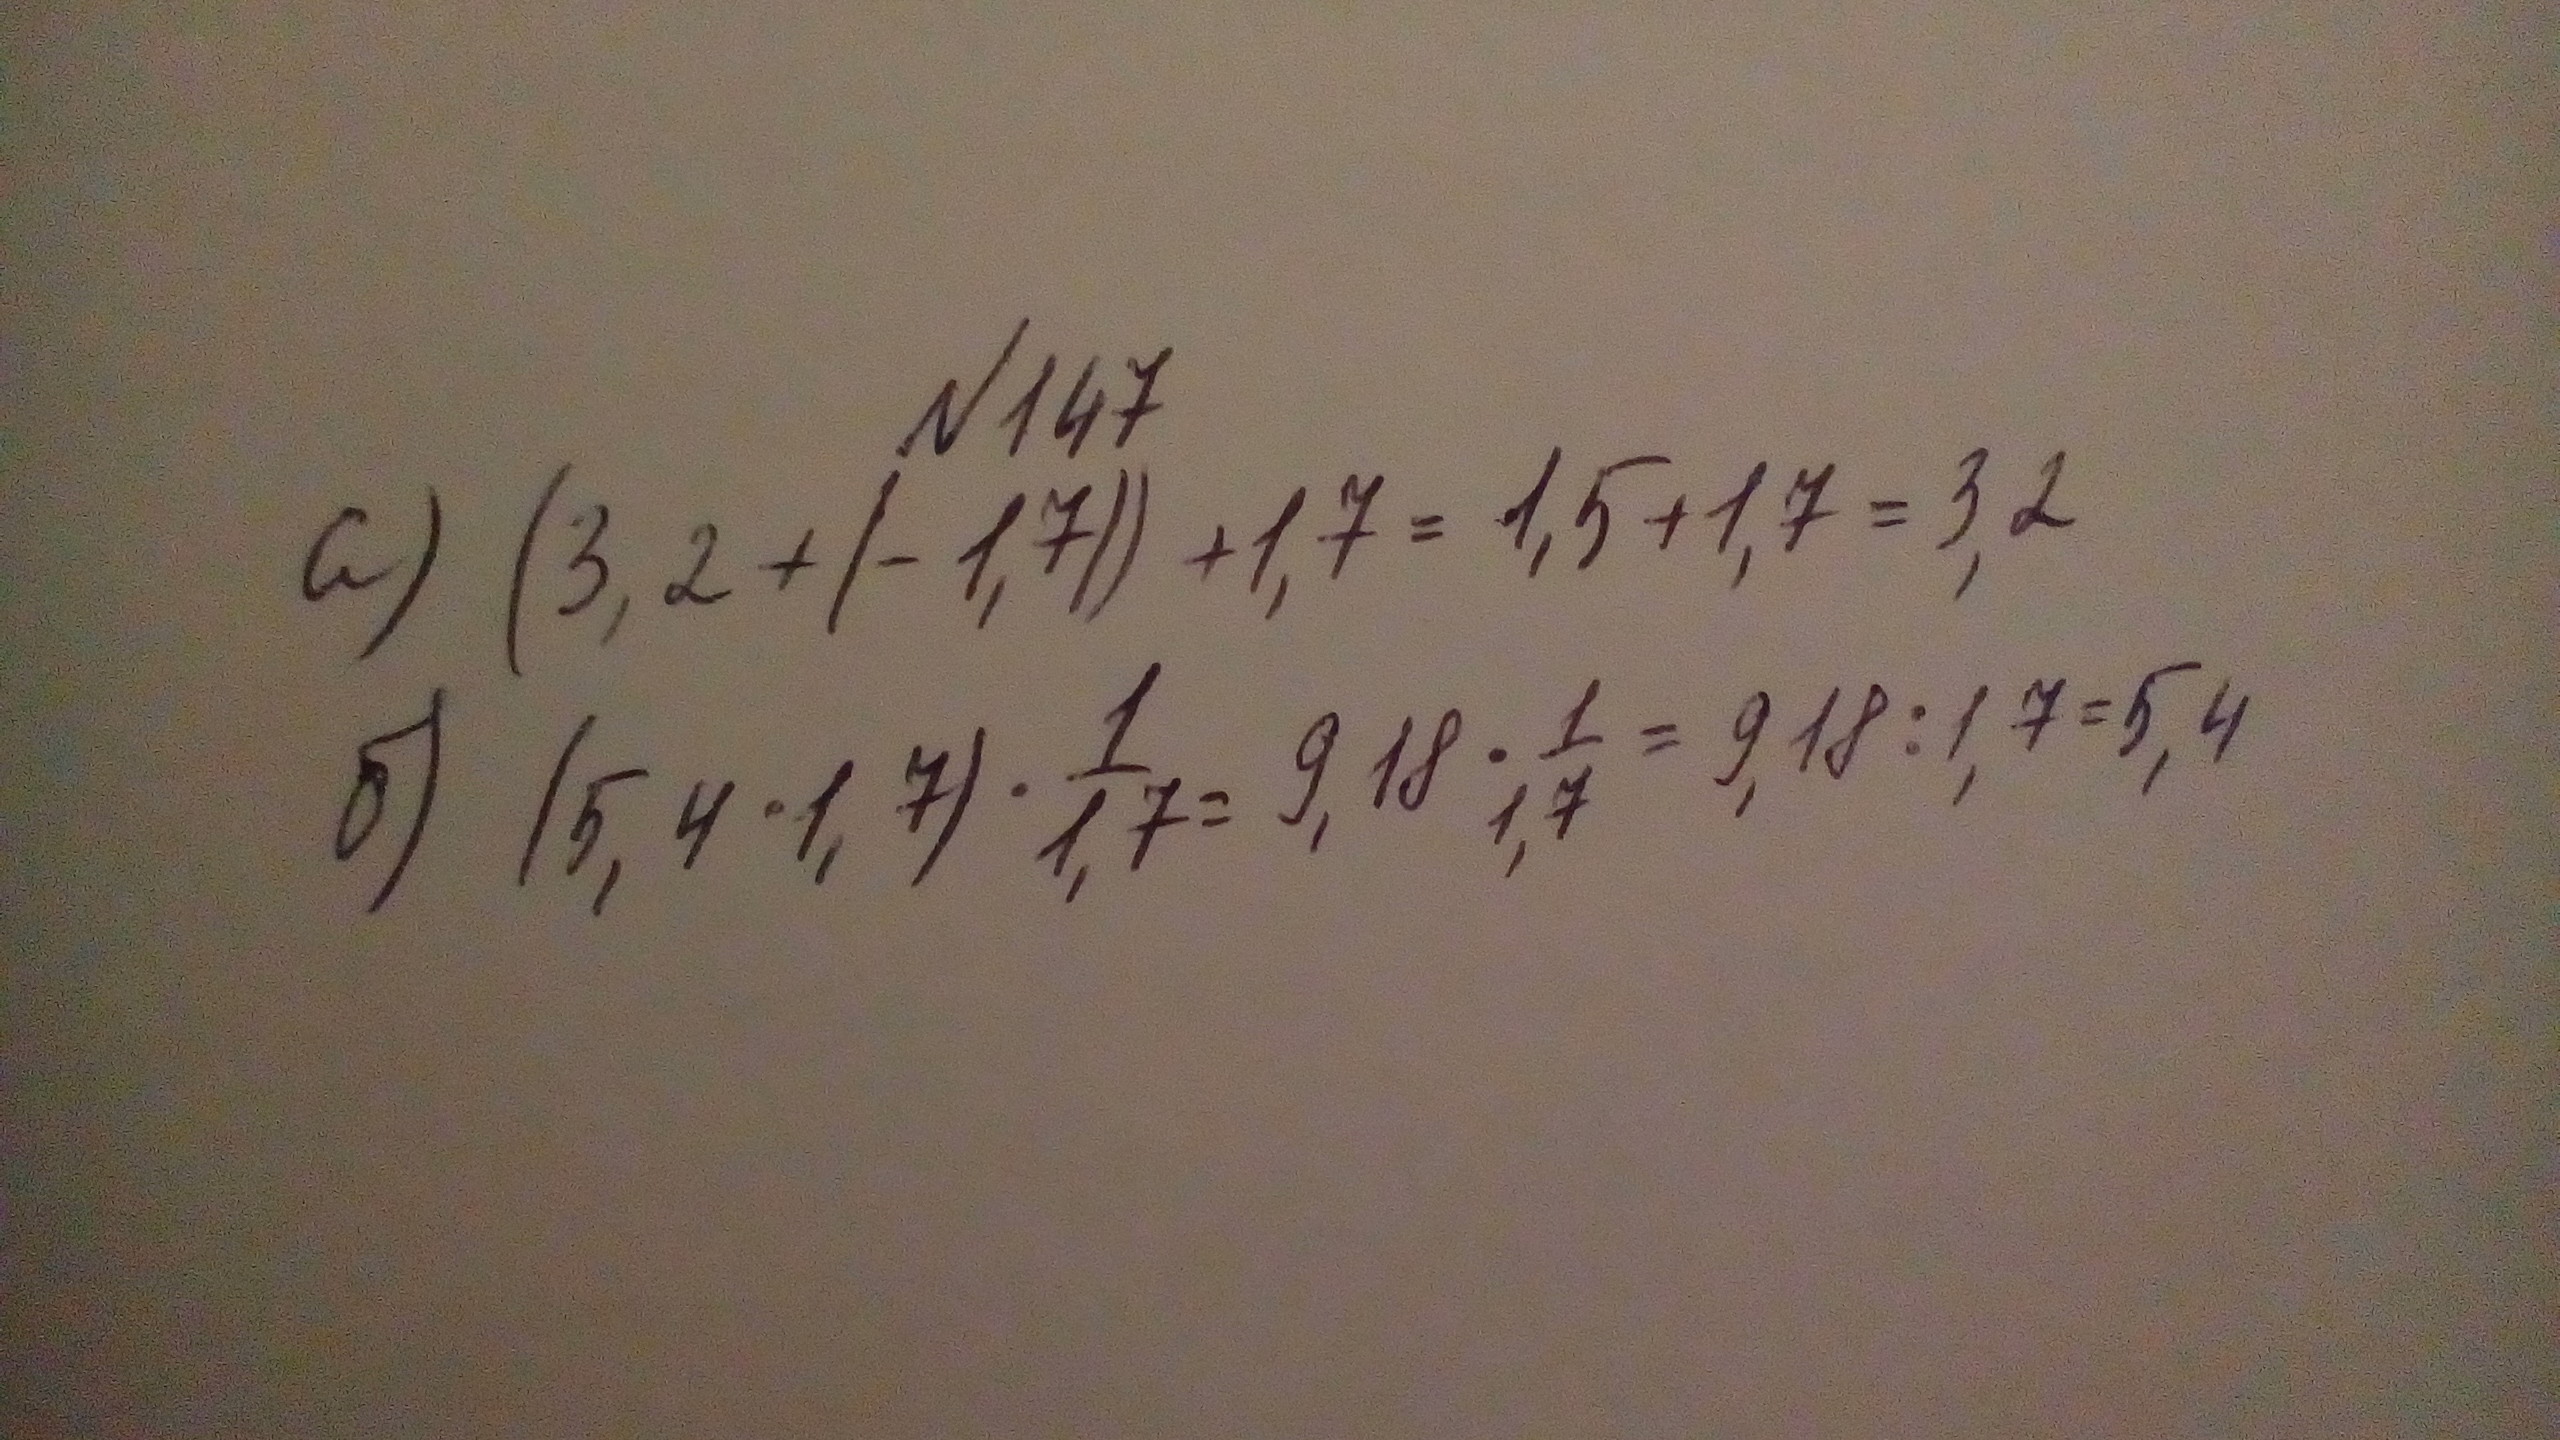 №147
а) (3,2+(-1,7))+1,7=1,5+1,7=3,2
б) (5,4·1,7)·1/1,7=9,18·1/1,7=9,18:1,7=5,4